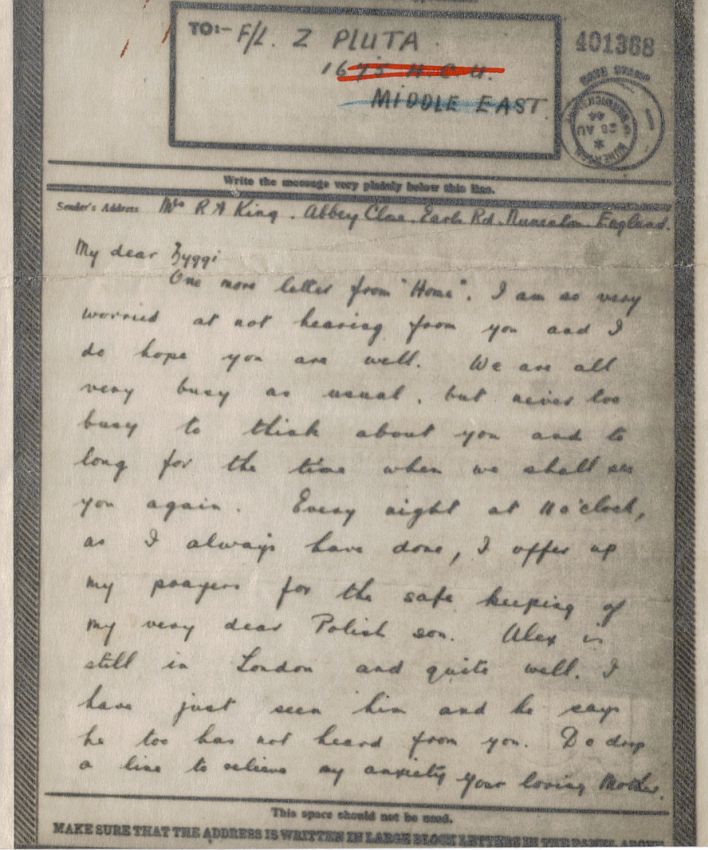 TO:- F/L. Z PLUTA
1675 H.C.U.
MIDDLE EAST.
401368
DATE STAMP
28 AU
44
Write the message very plainly below this line.
Sender's Address Mrs R A King. Abbey Close. Earls Rd. Nuneaton England.
My dear Zyggi
One more letter from "Home". I am so very
worried at not hearing from you and I
do hope you are well. We are all
very busy as usual, but never too
busy to think about you and to
long for the time when we shall see
you again. Every night at 11 o'clock,
as I always have done, I offer up
my prayers for the safe keeping of
my very dear Polish son. Alex is
still in London and quite well. I
have just seen him and he says
he too has not heard from you. Do drop
a line to relieve my anxiety your loving Mother.
This space should not be used.
MAKE SURE THAT THE ADDRESS IS WRITTEN IN LARGE BLOCK LETTERS IN THE PANEL ABOVE